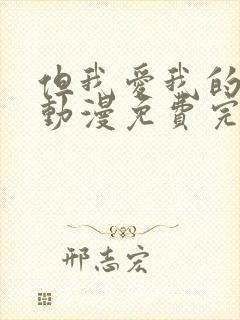 但我愛我的
動漫免費完
邢志宏